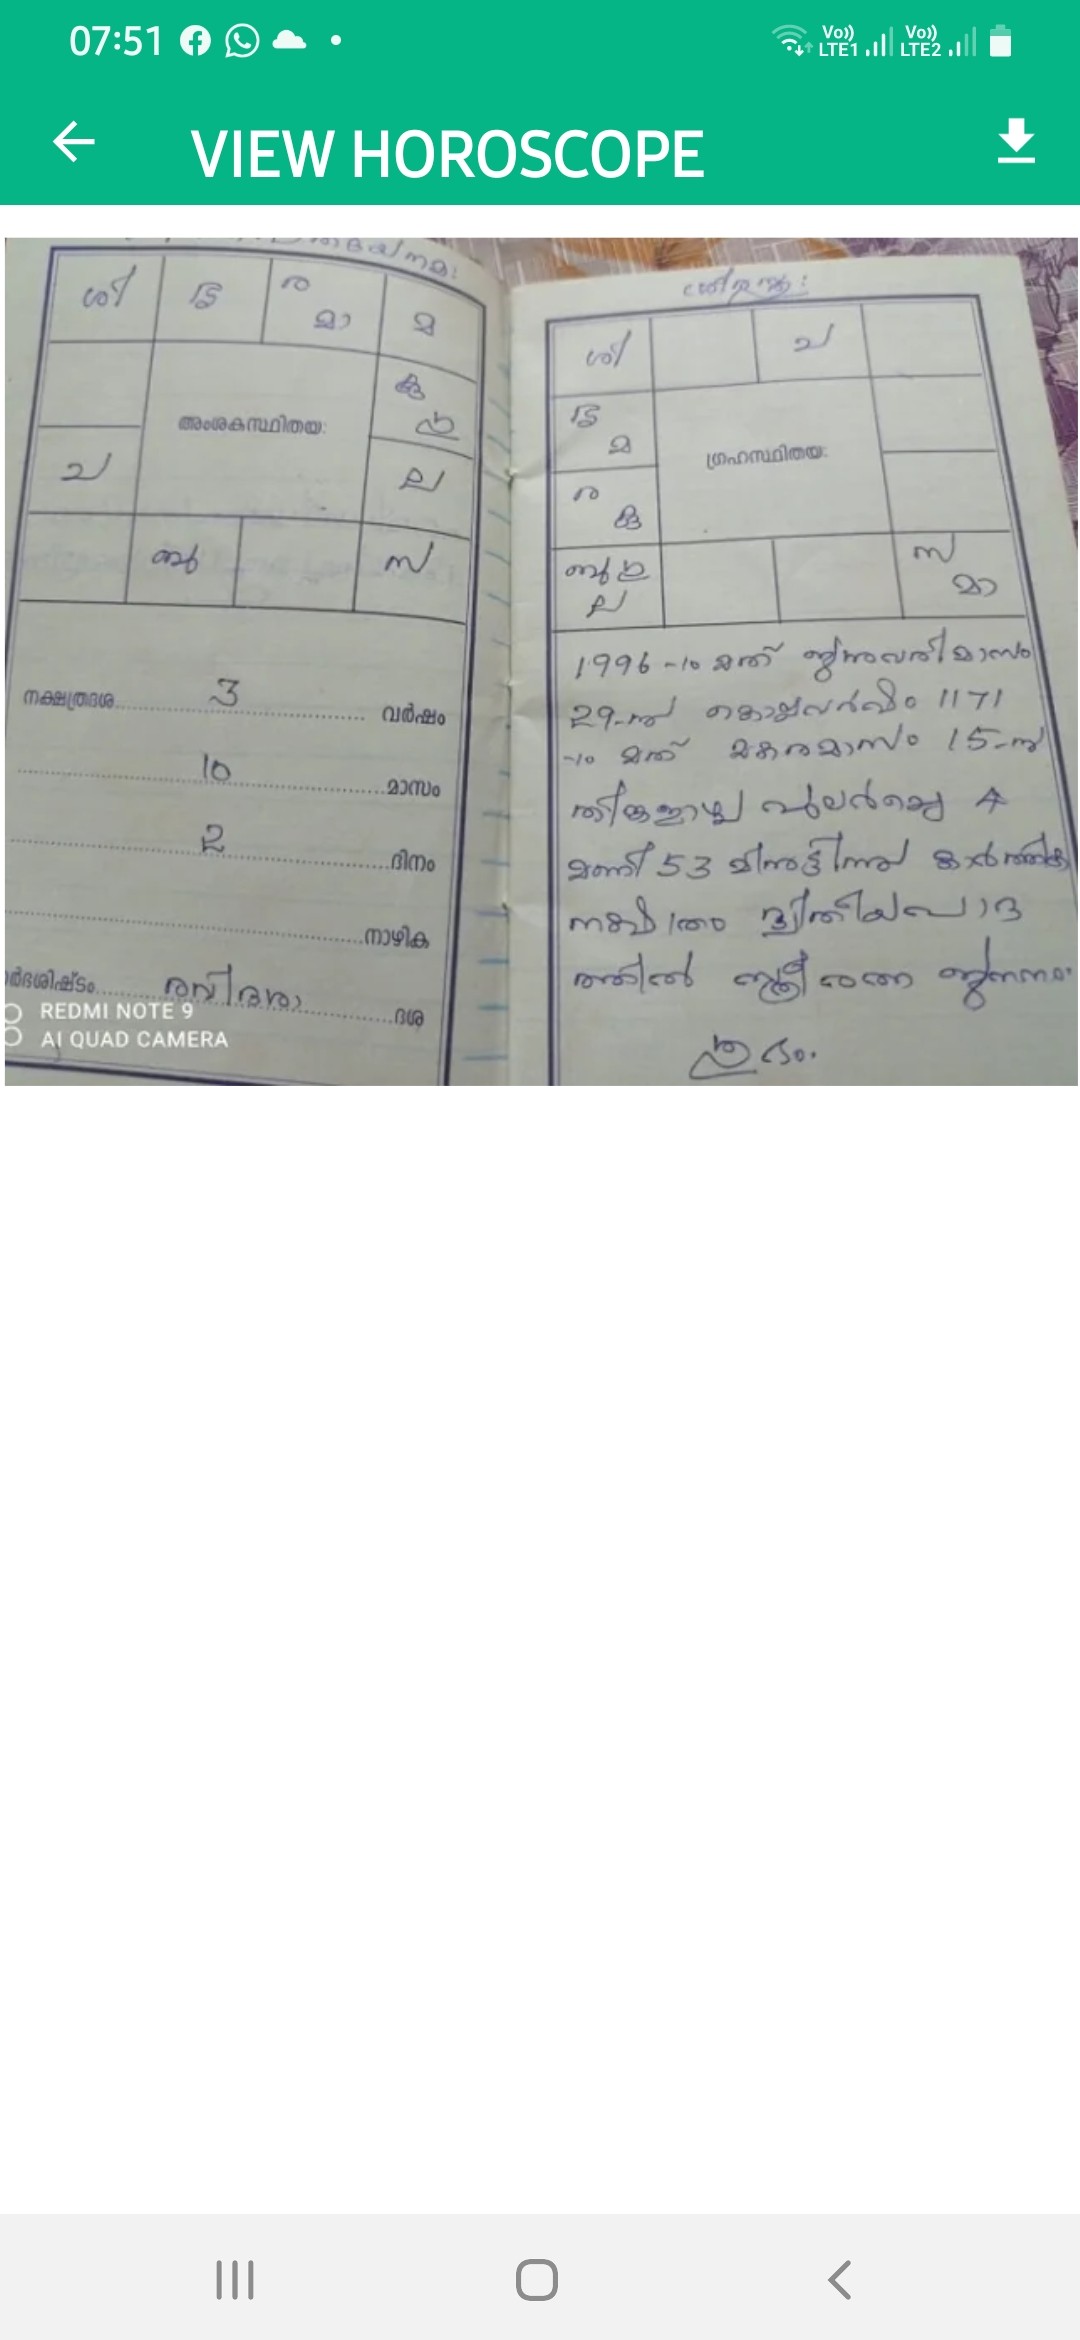 07:51
Vo)) LTE1 Vo)) LTE2
VIEW HOROSCOPE
ശി
ഗു
ര
മാ
മ
കു
അംശകസ്ഥിതയ:
ച
ല
ബു
സ
നക്ഷത്രദശ 3 വർഷം
10 മാസം
2 ദിനം
നാഴിക
രവിദശാ ദശ
REDMI NOTE 9
AI QUAD CAMERA
ശി
ച
മ
ഗ്രഹസ്ഥിതയ:
ര
കു
സ
ബു
മാ
ല
1996-ാം മത് ജനുവരിമാസം
29-ന് കൊല്ലവർഷം 1171
-ാം മത് മകരമാസം 15-ന്
തിങ്കളാഴ്ച പുലർച്ചെ 4
മണി 53 മിനുട്ടിന്ന് കാർത്തിക
നക്ഷത്രം ദ്വിതീയപാദ
ത്തിൽ സ്ത്രീ ജനനം
ശുഭം.